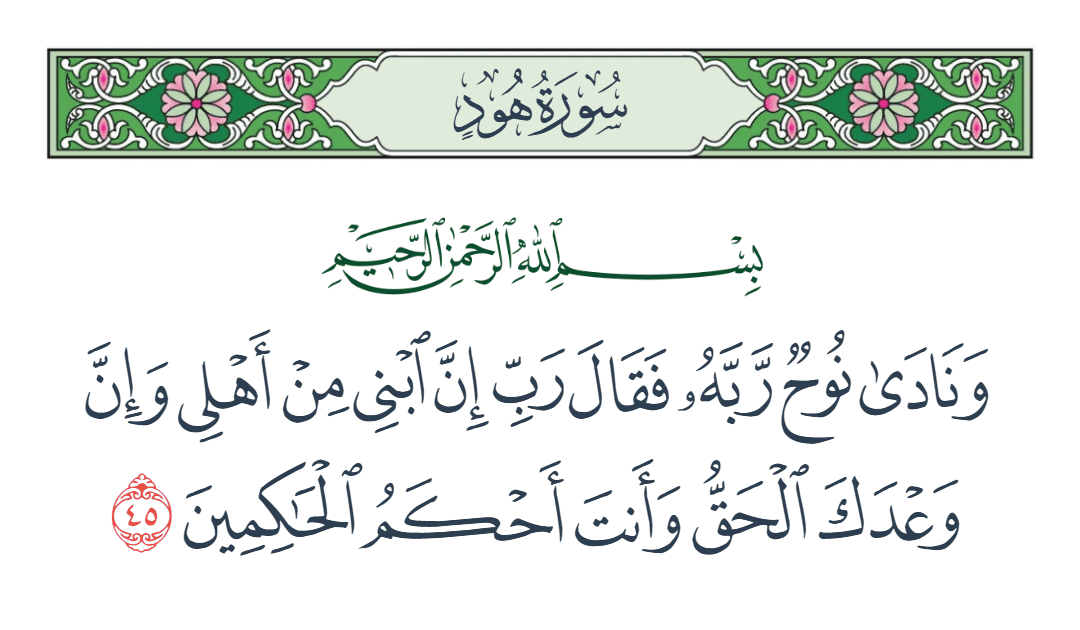 سُورَةُ هُودٍ
بِسْمِ ٱللَّهِ ٱلرَّحْمَٰنِ ٱلرَّحِيمِ
وَنَادَىٰ نُوحٌ رَّبَّهُۥ فَقَالَ رَبِّ إِنَّ ٱبْنِى مِنْ أَهْلِى وَإِنَّ
وَعْدَكَ ٱلْحَقُّ وَأَنتَ أَحْكَمُ ٱلْحَٰكِمِينَ ٤٥